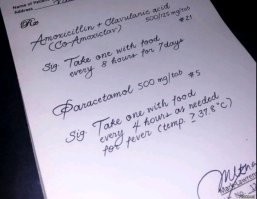 Name of Patient
Address
Rx
Amoxicillin + Clavulanic acid
(Co-Amoxiclav) 500/125mg/tab
#21
Sig. Take one with food
every 8 hours for 7days
Paracetamol 500 mg/tab #5
Sig. Take one with food
every 4 hours as needed
for fever (temp. ≥ 37.8°C)